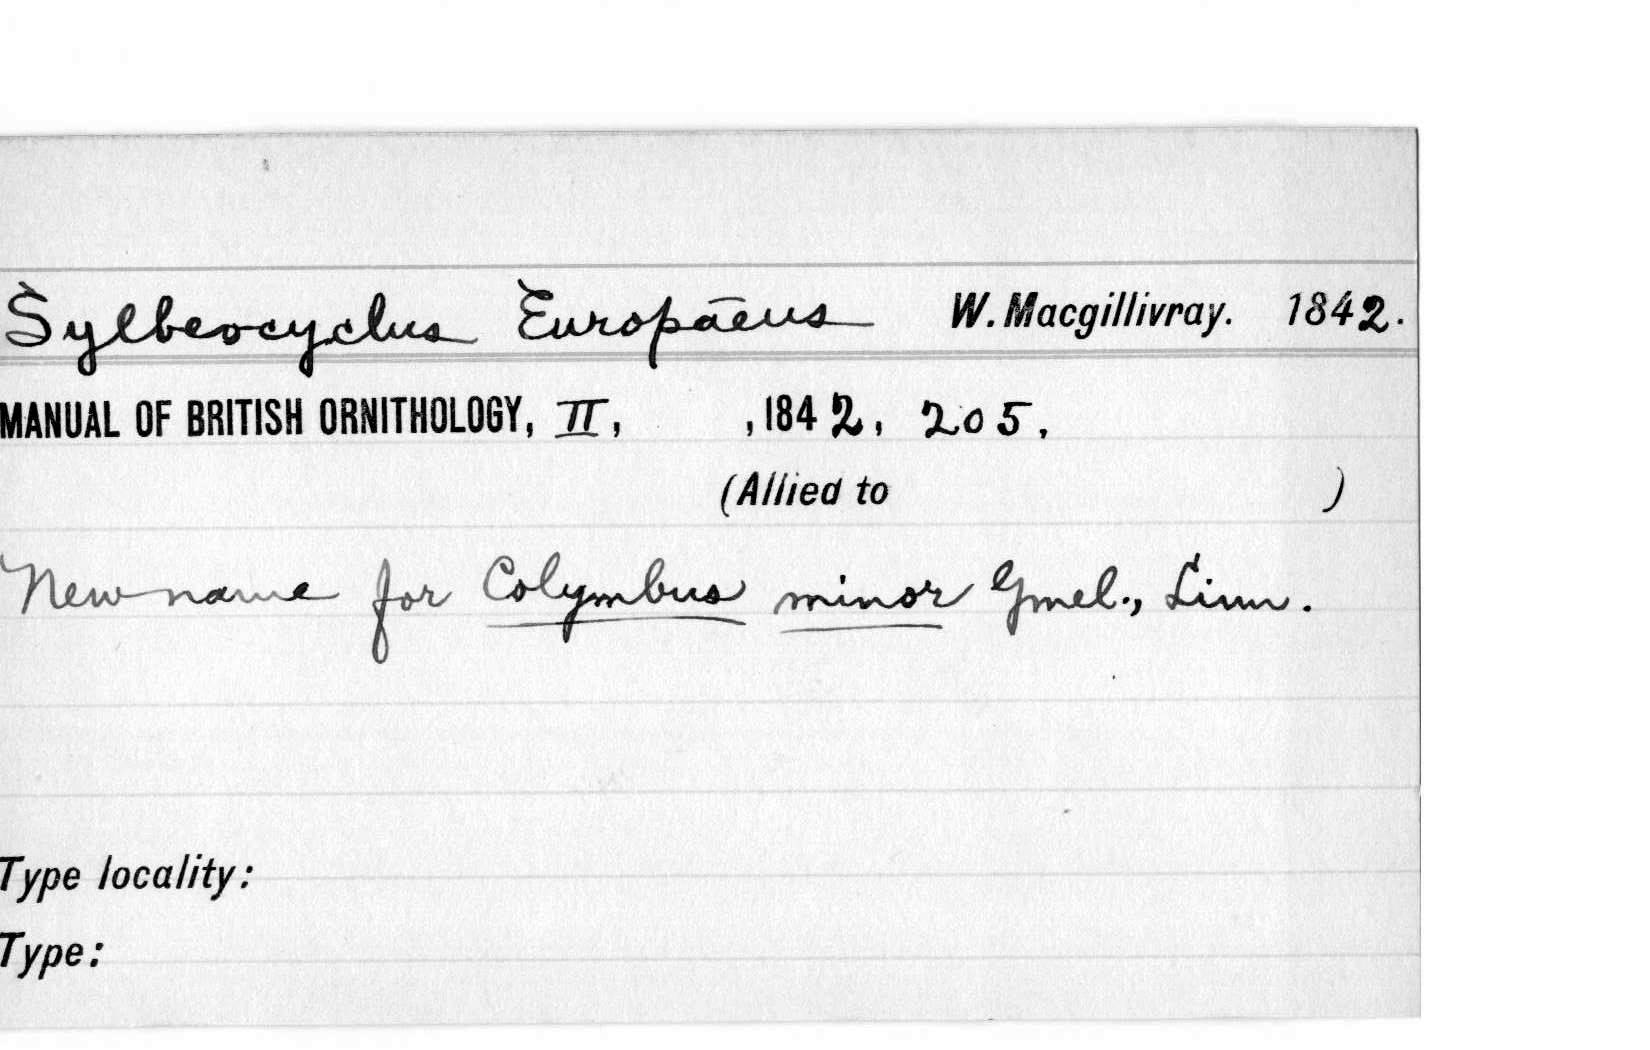 Sylbeocyclus Europæus W. Macgillivray. 1842.
MANUAL OF BRITISH ORNITHOLOGY, II, , 1842, 205.
(Allied to )
New name for Colymbus minor Gmel., Linn.
Type locality:
Type: